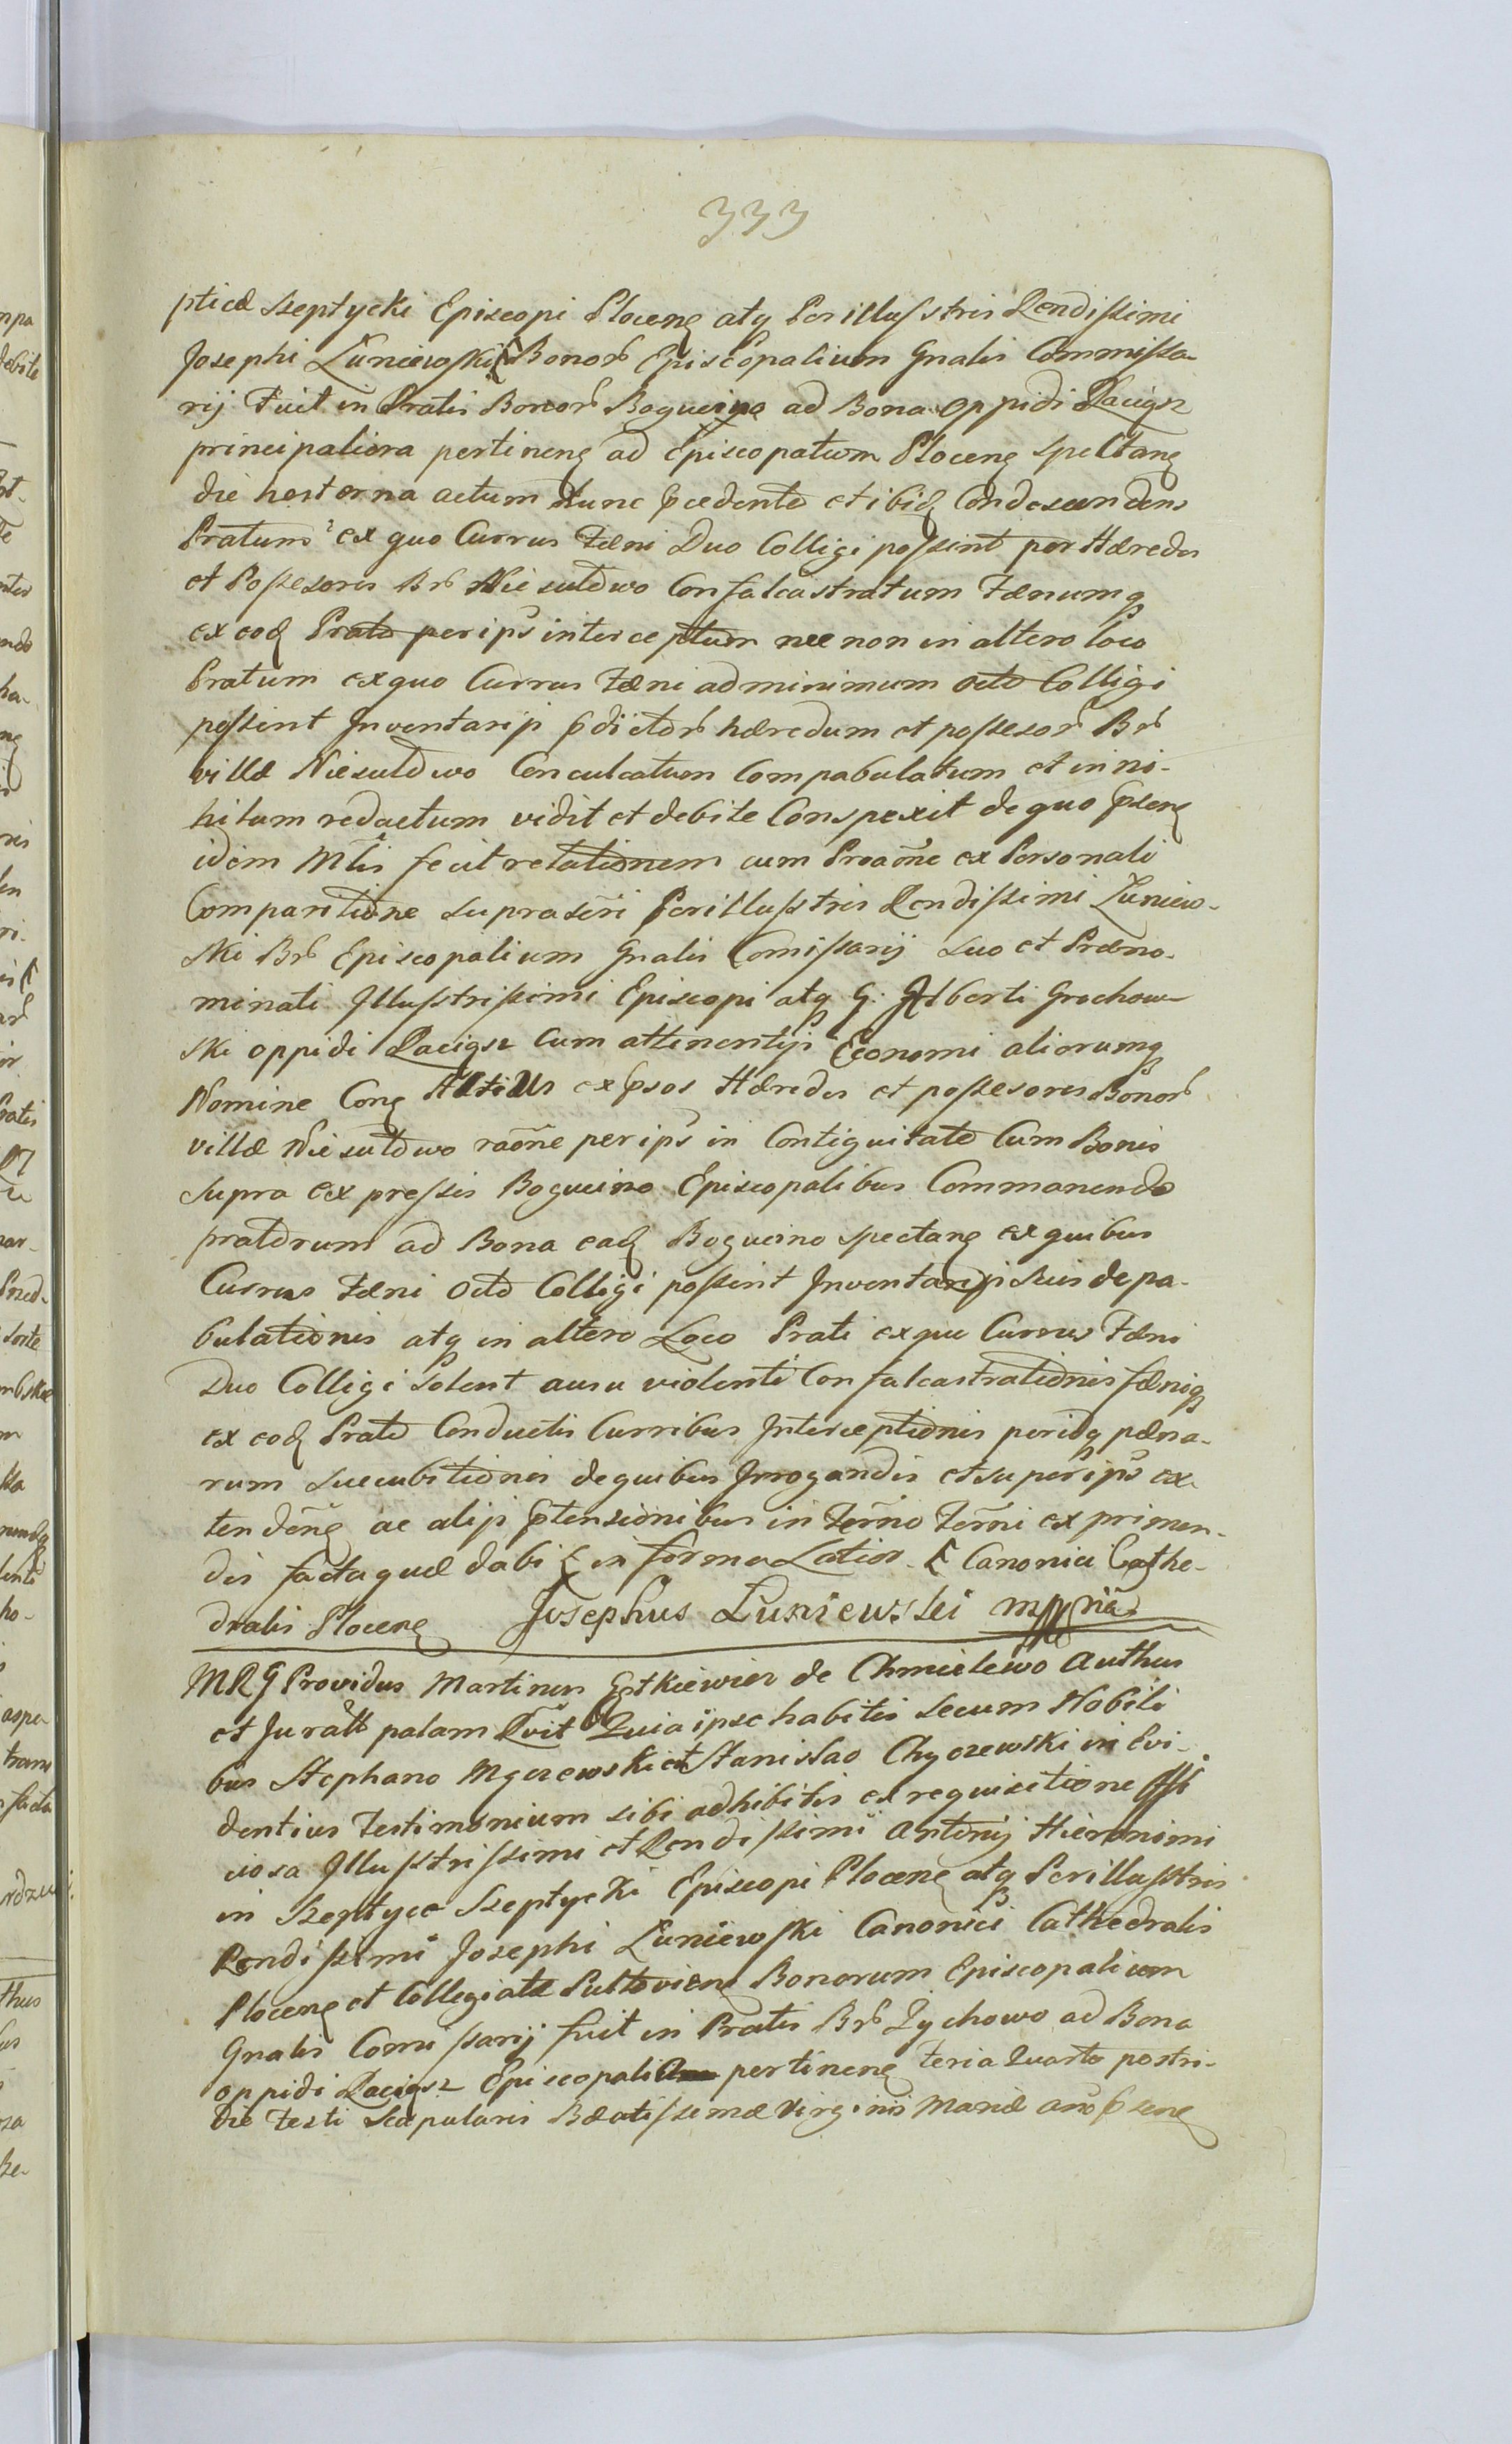 333
pticæ Szeptycki Episcopi Plocen atq Perillustris Rendissimi
Josephi Łuniewski Bonor Episcopalium Gnalis Commissa-
rij Fuit in Pratis Bonor Bogucino ad Bona oppidi Raciąsz
principaliora pertinen ad Episcopatum Plocen spectan
die hesterna actum hunc pcedente et ibid Condescendens
Pratum ex quo Currus Fæni Duo Colligi possint per Hæredes
et Possesores Br Niesułowo Confalcastratum Fænumq
ex eod Prato per ips interceptum nec non in altero loco
Pratum ex quo Currus Fæni ad minimum octo Colligi
possint Inventarijs pdictor hæredum et possesor Br
villæ Niesułowo Conculcatum Compabulatum et in ni-
hilum redactum vidit et debite Conspexit de quo psens
idem Mtis fecit relationem cum Proaone ex Personali
Comparitione suprascri Perillustris Rendissimi Łuniew-
ski Br Episcopalium Gnalis Comissarij suo et Præno-
minati Illustrissimi Episcopi atq G. Alberti Grochow-
ski oppidi Raciąsz Cum attinentijs Economi aliorumq
Nomine Con Altius expsos Hæredes et possesores Bonor
villæ Niesułowo raone per ips in Contiguitate Cum Bonis
supra expressis Bogucino Episcopalibus Commanendo
pratorum ad Bona ead Bogucino spectan ex quibus
Currus Fæni octo Colligi possint Inventarijs suis depa-
bulationis atq in altero Loco Prati ex quo Currus Fæni
Duo Colligi solent ausu violenti Confalcastrationis fæniq
ex eod Prato Conductis Curribus Interceptionis periodq pæna-
rum succubitionis de quibus Irrogandis et super ips ex-
tenden ac alijs ptensionibus in Terno Terni exprimen-
dis facta quæ dabi in forma Latior Canonici Cathe-
dralis Plocen Josephus Luniewski mppria
MRG Providus Martinus Estkiewicz de Chmielewo Authus
et Jurats palam Rvit Quia ipse habitis secum Nobili
bus Stephano Mgczewski et Stanislao Chyczewski in Evi-
dentius Testimonium sibi adhibitis ex requisitione
iosa Illustrissimi et Rendissimi Antonij Hieronimi
in Szeptyce Szeptycki Episcopi Plocen atq Perillustris
Rendissimi Josephi Łuniewski Canonici Cathedralis
Plocen et Collegiatæ Pultovien Bonorum Episcopalium
Gnalis Comissarij fuit in Pratis Br Zychowo ad Bona
oppidi Raciąsz Episcopali pertinen Feria Quarta postri-
die Festi Scapularis Beatissimæ Virginis Mariæ ano psen